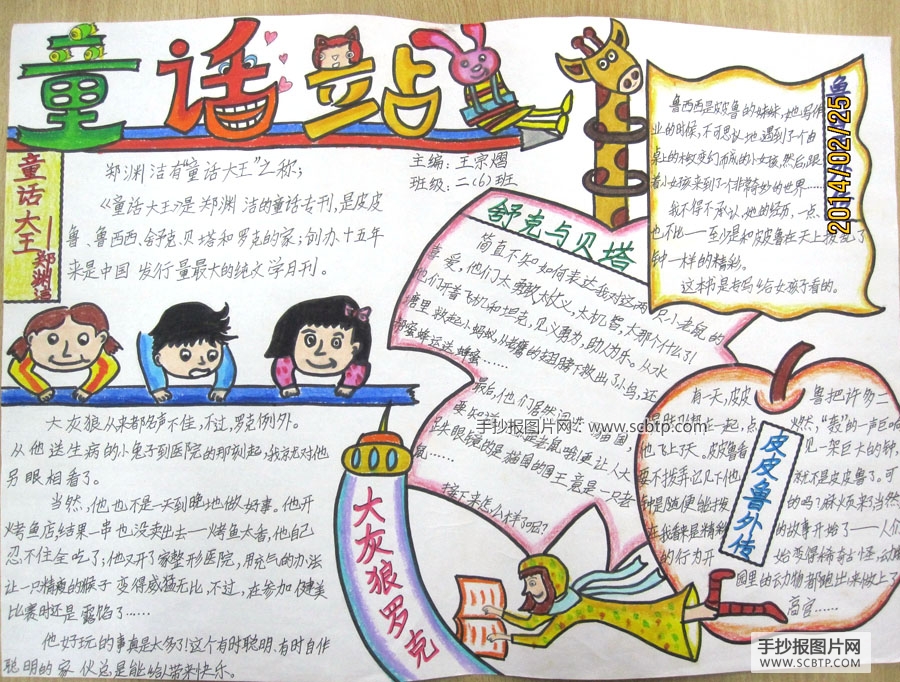 童话站
童话大王——郑渊洁
郑渊洁有"童话大王"之称;
《童话大王》是郑渊洁的童话专刊,是皮皮
鲁、鲁西西、舒克、贝塔和罗克的家;创办十五年
来是中国发行量最大的纯文学月刊。
主编:王宗熠
班级:二(6)班
鲁西西是皮皮鲁的妹妹,她写作
业的时候,不可思议地遇到了个由
桌上的木纹变幻而成的小女孩,然后,跟
着小女孩来到了个非常奇妙的世界……
我不得不承认,她的经历,一点
也不比——至少是和皮皮鲁在天上拨乱了
钟一样的精彩。
这本书是老妈给女孩子看的。
2014/02/25
舒克与贝塔
简直不知如何表达我对这两只小老鼠的
喜爱,他们大勇敢大仗义,大机智,大那个什么了!
他们开着飞机和坦克,见义勇为,助人为乐。从水
塘里救起小蚂蚁,从老鹰的翅膀下救出了小鸟,还
帮蜜蜂运送蜂蜜……
最后,他们居然闯进了猫国
要知道
是老鼠哦,更让人大
跌眼镜的是猫国的国王竟是一只老
鼠……
接下来怎么样了呢?
手抄报图片网:www.scbtp.com
大灰狼从来都名声不佳,不过,罗克例外。
从他送生病的小兔子到医院的那刻起,我就对他
另眼相看了。
当然,他也不是一天到晚地做好事。他开
烤鱼店结果一串也没卖出去——烤鱼太香,他自己
忍不住全吃了;他又开了家整形医院,用充气的办法
让一只精瘦的猴子变得威猛无比,不过,在参加健美
比赛时还是露馅了……
他好玩的事真是太多了!这个有时聪明、有时自作
聪明的家伙总是能给人带来快乐。
大灰狼罗克
皮皮鲁外传
有一天,皮皮鲁把许多二
踢脚绑在一起,点燃,"轰"的一声巨响
他飞上了天。皮皮鲁看见一架巨大的钟,
要不拨弄记见下他就不是皮皮鲁了。可
钟是随便能拨的吗?麻烦来了,当然
在我看来是精彩的故事开始了——人们
的行为开始变得稀奇古怪,动物
园里的动物都跑出来做上了
高官……
手抄报图片网
WWW.SCBTP.COM